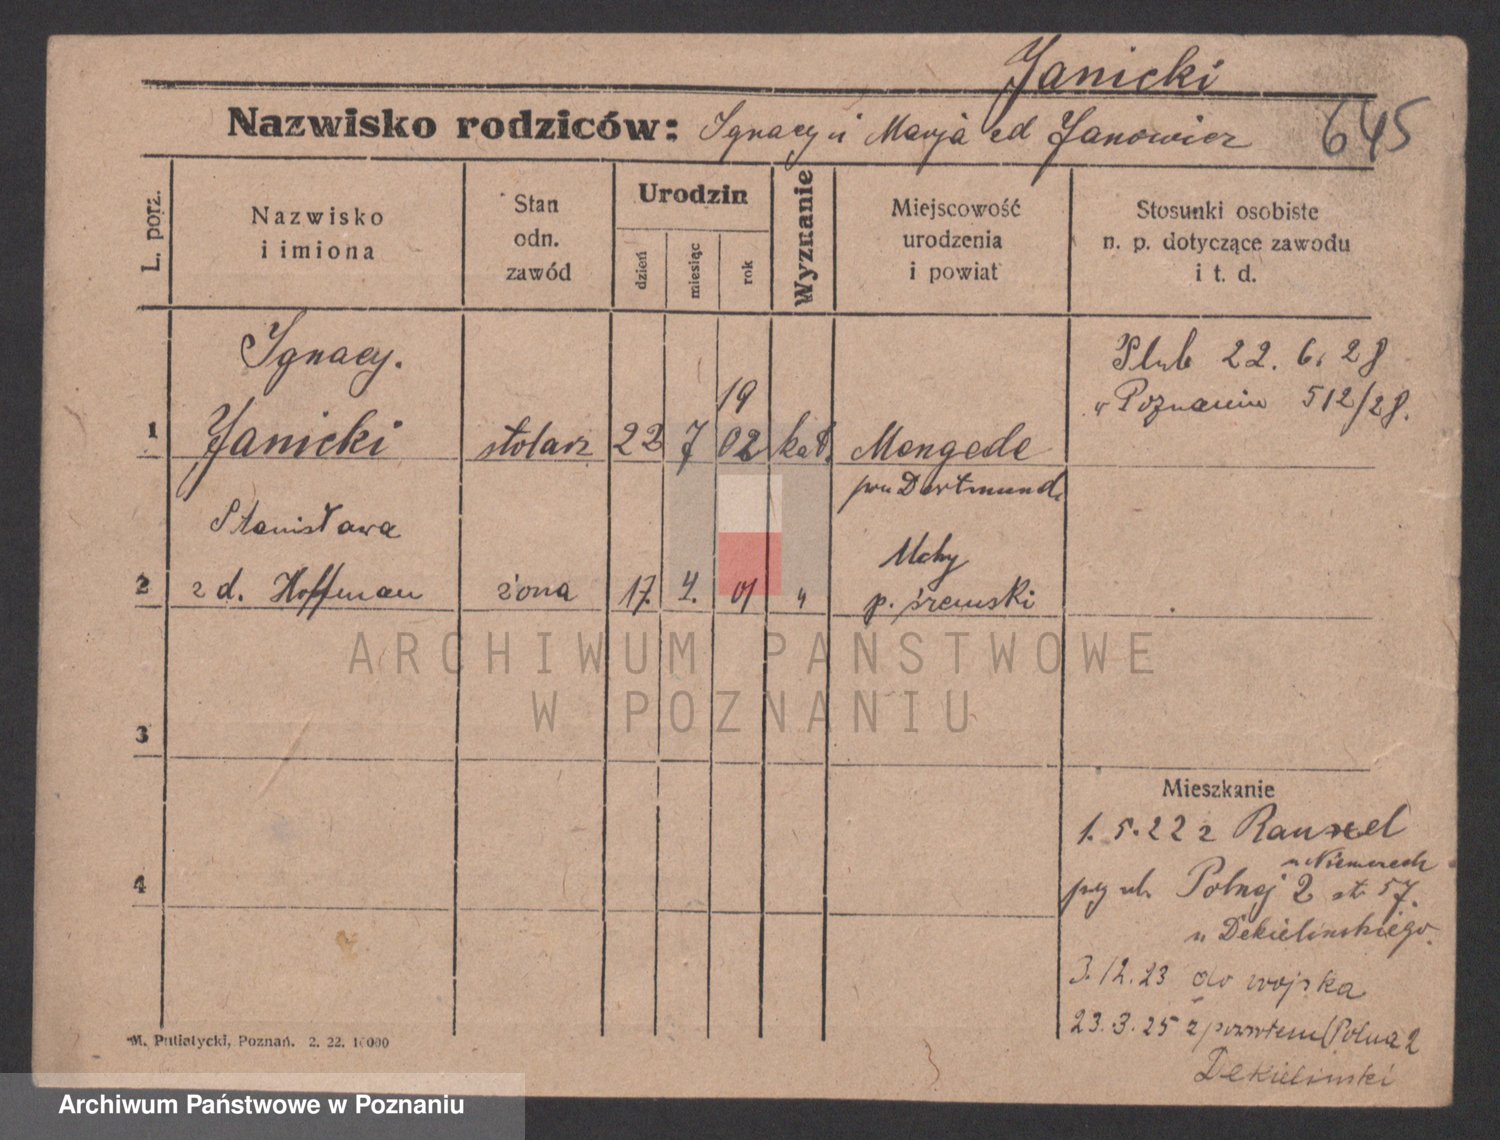 Janicki
Nazwisko rodziców: Ignacy i Marja z d Janowicz
645
L. porz.
Nazwisko
i imiona
Stan
odn.
zawód
Urodzin
dzień
miesiąc
rok
Wyznanie
Miejscowość
urodzenia
i powiat
Stosunki osobiste
n. p. dotyczące zawodu
i t. d.
Ignacy.
1 Janicki stolarz 22 7 1902 kat. Mengede
pow Dortmund
Ślub 22. 6. 28
w Poznaniu 512/28.
Stanisława
2 z d. Hoffman żona 17. 4. 01 "
Mchy
p. śremski
3
4
ARCHIWUM PAŃSTWOWE
W POZNANIU
Mieszkanie
1. 5. 22 z Rauxel
w Niemczech
przy ul. Polnej 2 st. 57.
u Dekielinskiego.
3. 12. 23 do wojska
23. 3. 25 z powrotem (Polna 2
Dekielinski
M. Putiatycki, Poznań. 2. 22. 10000
Archiwum Państwowe w Poznaniu